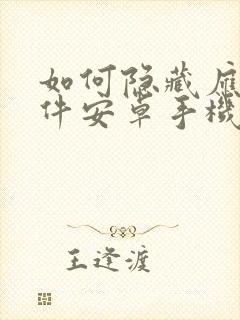 如何隐藏应
件安卓手機
王逢渡